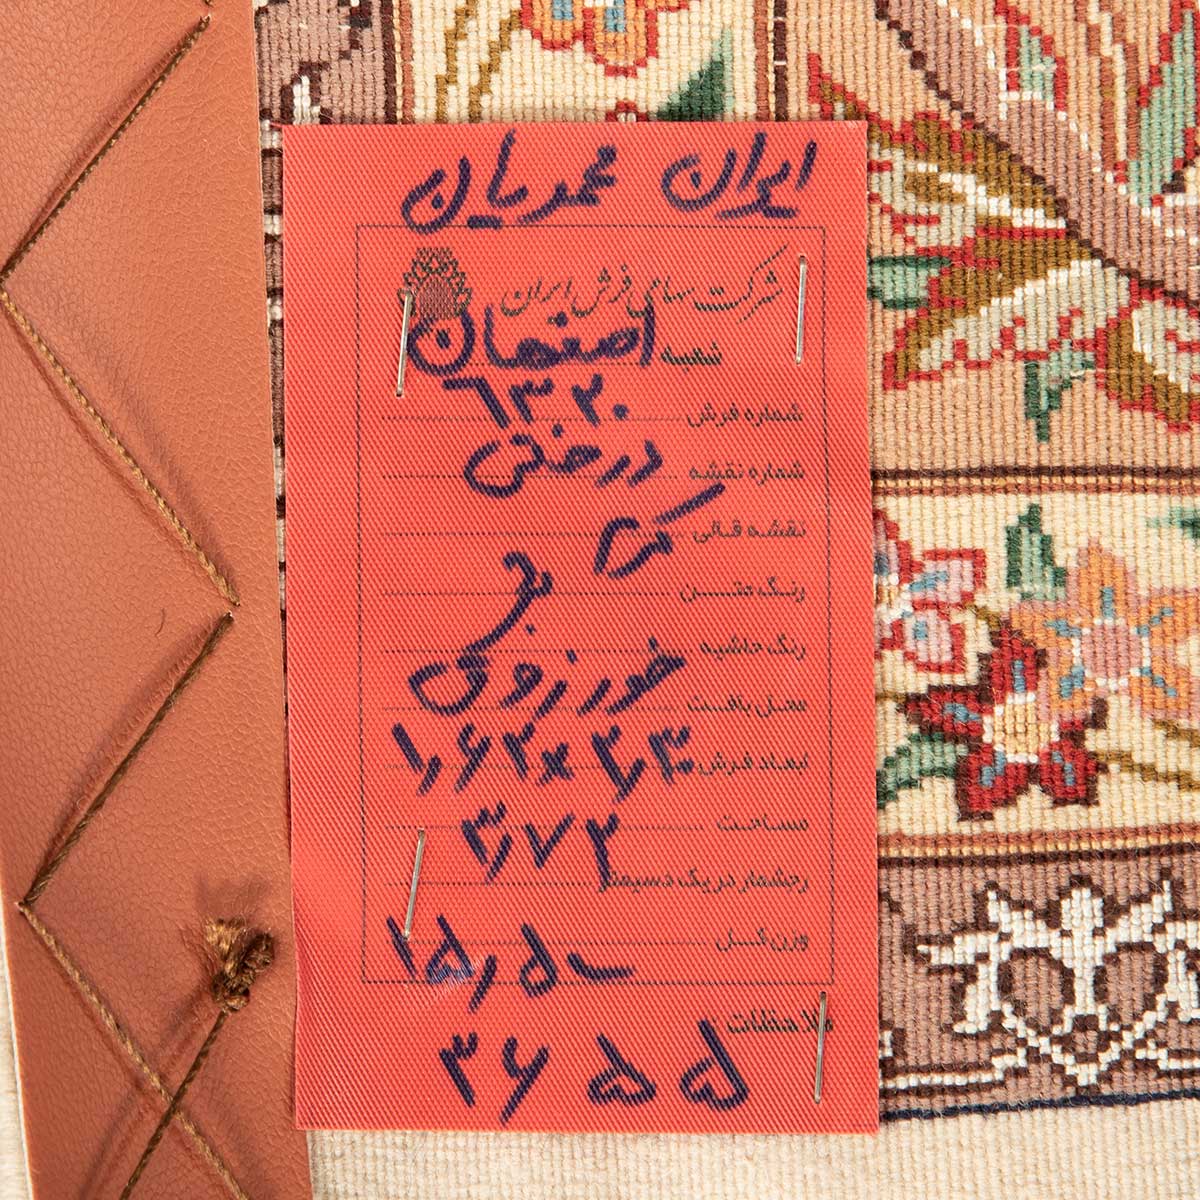 ایران محمدیان
شرکت سهامی فرش ایران
شعبه اصفهان
شماره فرش ۶۳۲۰
شماره نقشه درختی
نقشه قالی کرم
رنگ متن
رنگ حاشیه
محل بافت خورزوق
ابعاد فرش ۱٫۶۲×۲٫۳۰
مساحت ۳٫۷۲
رجشمار در یک دسیمتر
وزن کل ۱۵٫۵۰۰
ملاحظات :
۳۶ ۵ ۵